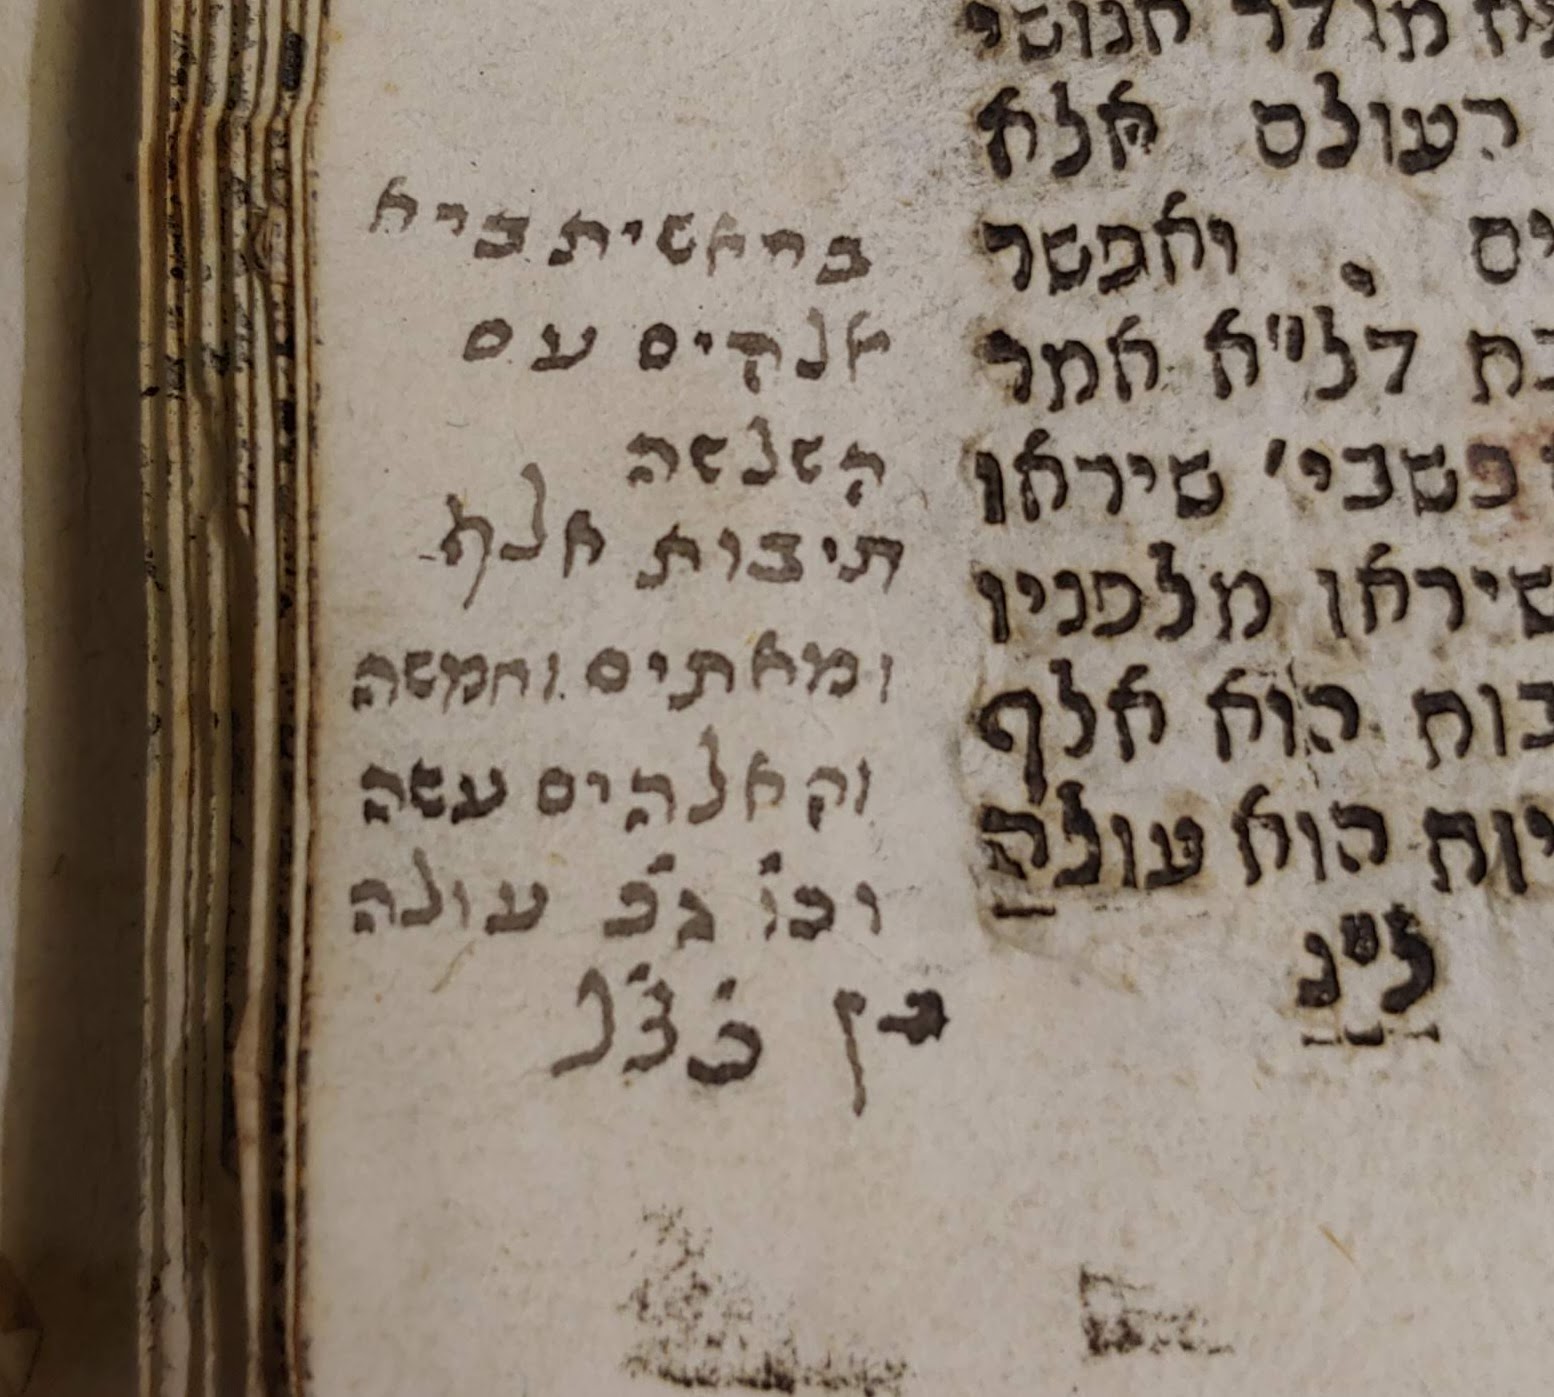 מולד חנוטי
העולם אלא
ים . ואפשר
דל"א אמר
כשבי' שיראו
שיראו מלפניו
בות הוא אלף
יות הוא עולה
ל"נ
בראשית ברא
אלהים עם
השלשה
תיבות אלף
ומאתים וחמשה
והאלהים עשה
וכו' ג"כ עולה
כן